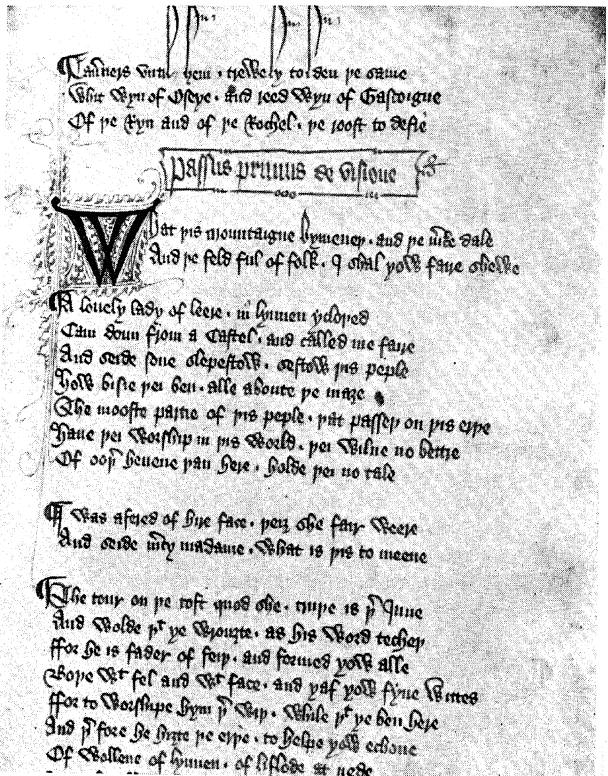 Tauners until hem . trewely to den þe same
Whit wyn of Oseye . and reed wyn of Gascoigne
Of þe Ryn and of þe Rochel . þe roost to defie
Passus primus de visione
What þis mountaigne bymeneþ . and þe m̅ke dale
And þe feld ful of folk . I shal yow faire shewe
A lovely lady of leere . in lynnen ycloþed
Cam doun from a Castel . and called me faire
And seide sone slepestow . sestow þis peple
How bisie þei ben . alle aboute þe maze
The mooste partie of þis peple . þat passeþ on þis erþe
Have þei worship in þis world . þei wilne no bettre
Of ooþ hevene þan here . holde þei no tale
I was afered of hire face . þeiȝ she fair weere
And seide m̅cy madame . what is þis to meene
The tour on þe toft quod she . truþe is þ̅ Inne
And wolde þᵗ ye wrouȝte . as his word techeþ
ffor he is fader of feiþ . and formed yow alle
Boþe wᵗ fel and wᵗ face . and yaf yow fyve wittes
ffor to worshipe hym þ̅ wiþ . while þᵗ ye ben here
And þ̅ fore he hiȝte þe erþe . to helpe yow echone
Of wollene of lynnen . of liflode at nede